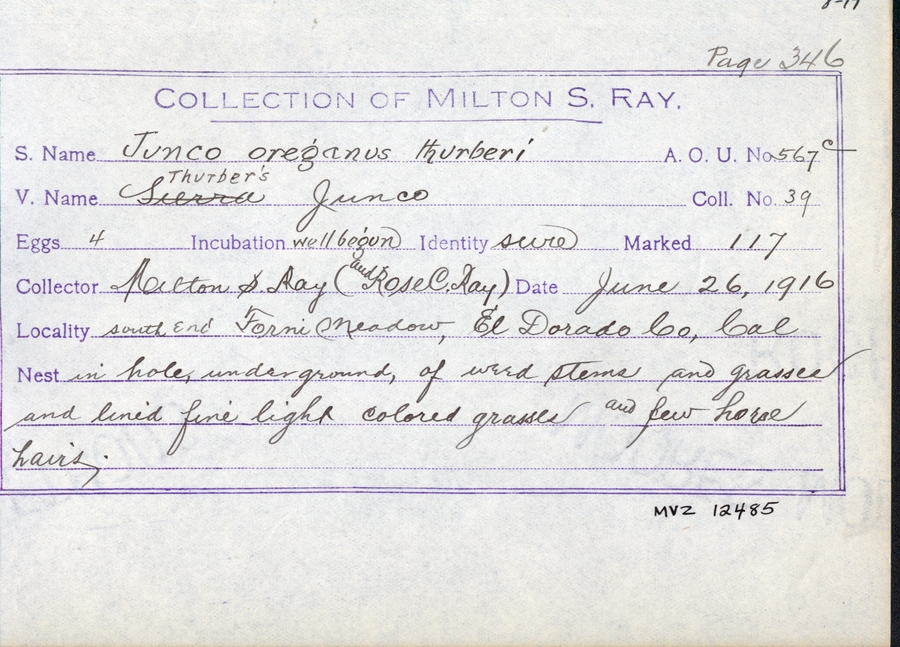 8-17
Page 346
COLLECTION OF MILTON S. RAY.
S. Name Junco oreganus thurberi A. O. U. No. 567c
Thurber's
V. Name Sierra Junco Coll. No. 39
Eggs 4 Incubation well begun Identity sure Marked 117
Collector Milton S Ray (and Rose C. Ray) Date June 26, 1916
Locality south End Forni Meadow, El Dorado Co, Cal
Nest in hole, underground, of weed stems and grasses
and lined fine light colored grasses and few horse
hairs.
MVZ 12485